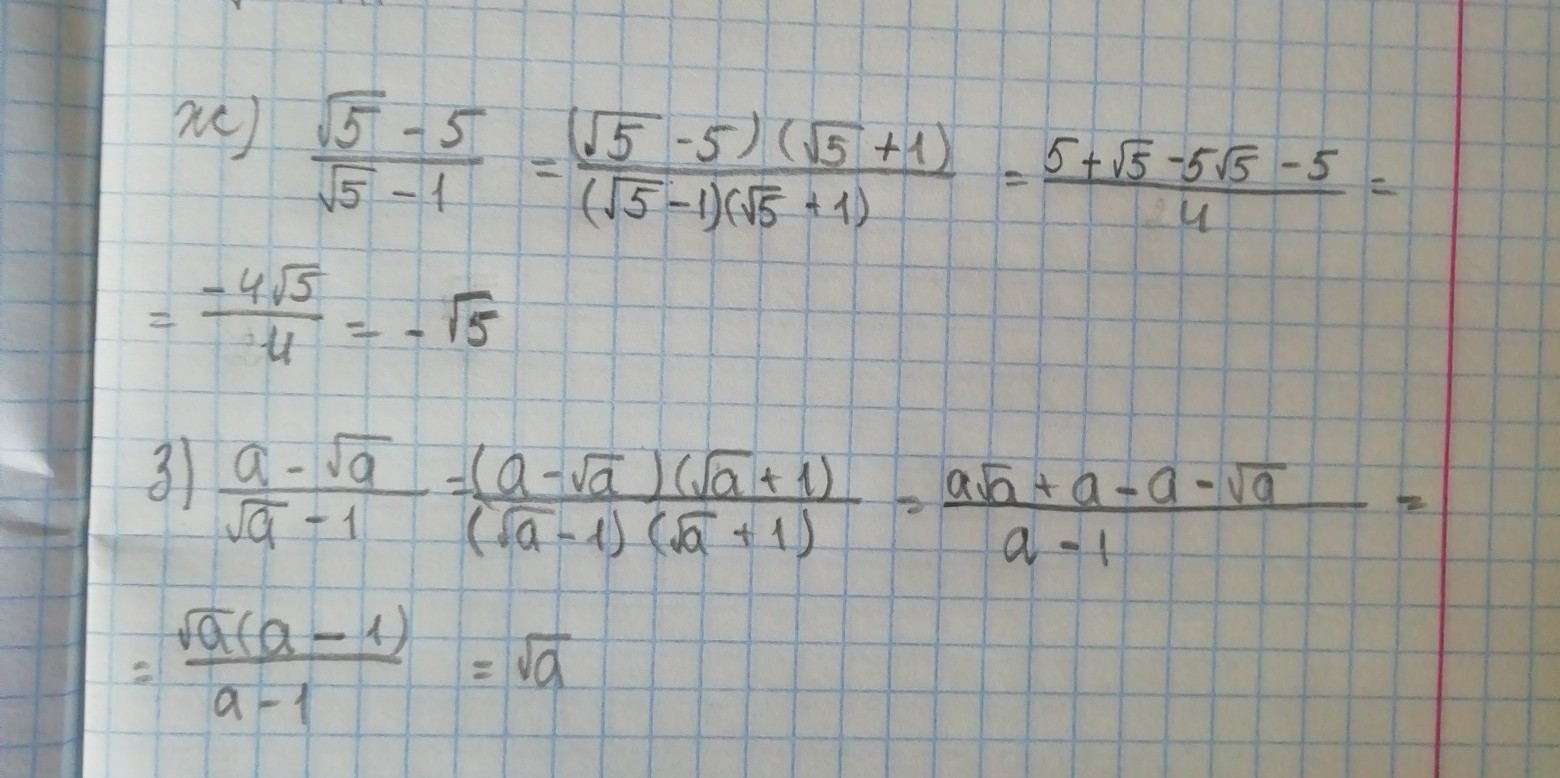 ж) (√5 - 5)/(√5 - 1) = ((√5 - 5)(√5 + 1))/((√5 - 1)(√5 + 1)) = (5 + √5 - 5√5 - 5)/4 =
= (-4√5)/4 = - √5
з) (a - √a)/(√a - 1) = ((a - √a)(√a + 1))/((√a - 1)(√a + 1)) = (a√a + a - a - √a)/(a - 1) =
= (√a(a - 1))/(a - 1) = √a